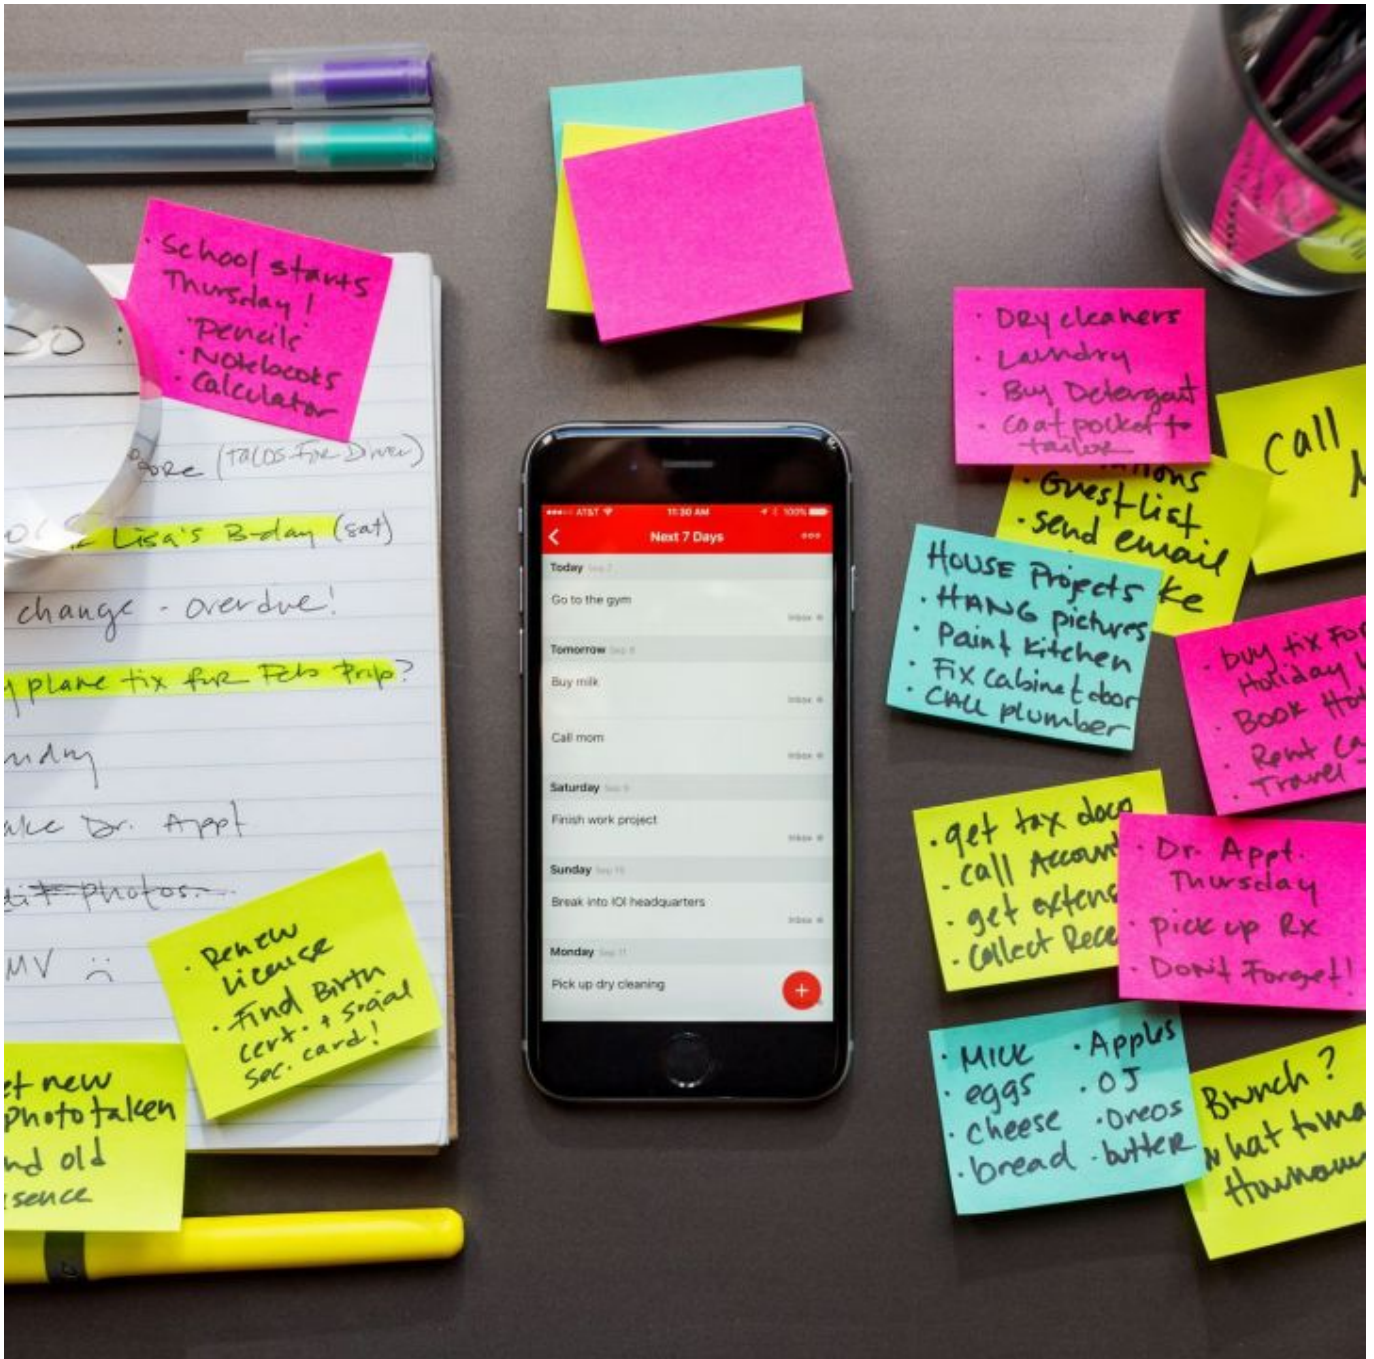 · School starts
Thursday!
· Pencils
· Notebooks
· Calculator
Do :
(Tacos for Dinner)
Lisa's B-day (sat)
change - overdue!
plane tix for Feb Trip?
Dr. Appt
photos
MV :(
· Renew
License
· Find Birth
cert. + social
sec. card!
new
photo taken
old
AT&T
11:30 AM
100%
Next 7 Days
Today Sep 7
Go to the gym
Inbox
Tomorrow Sep 8
Buy milk
Inbox
Call mom
Inbox
Saturday Sep 9
Finish work project
Inbox
Sunday Sep 10
Break into IOI headquarters
Inbox
Monday Sep 11
Pick up dry cleaning
+
· Dry cleaners
· Laundry
· Buy Detergent
· Coat pocket to
tailor
Call
M
· Guest list
· send email
House Projects
· HANG pictures
· Paint Kitchen
· Fix cabinet door
· CALL plumber
· buy tix For
Holiday
· Book
· Rent
· Travel
· get tax docs
· call
· get
· Collect
· Dr. Appt.
Thursday
· pick up Rx
· Don't Forget!
· Milk
· eggs
· cheese
· bread
· Apples
· OJ
· Oreos
· butter
Brunch?
what